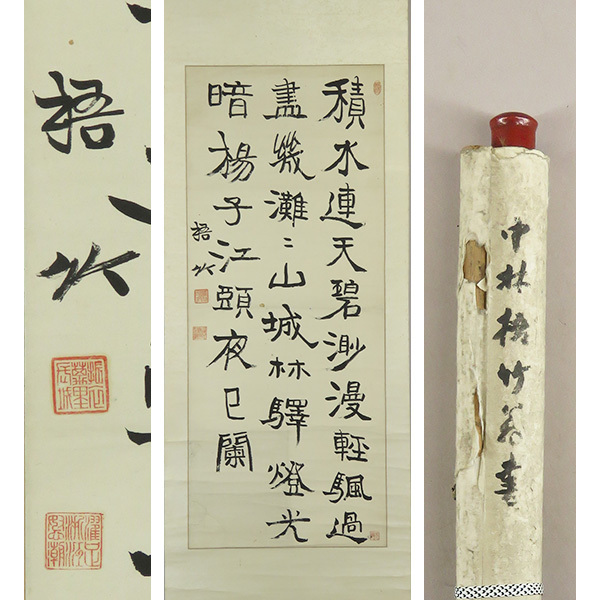 積水連天碧渺漫輕颿過
盡幾灘〻山城林驛燈光
暗楊子江頭夜已闌
梧竹
梧竹
中林梧竹翁書